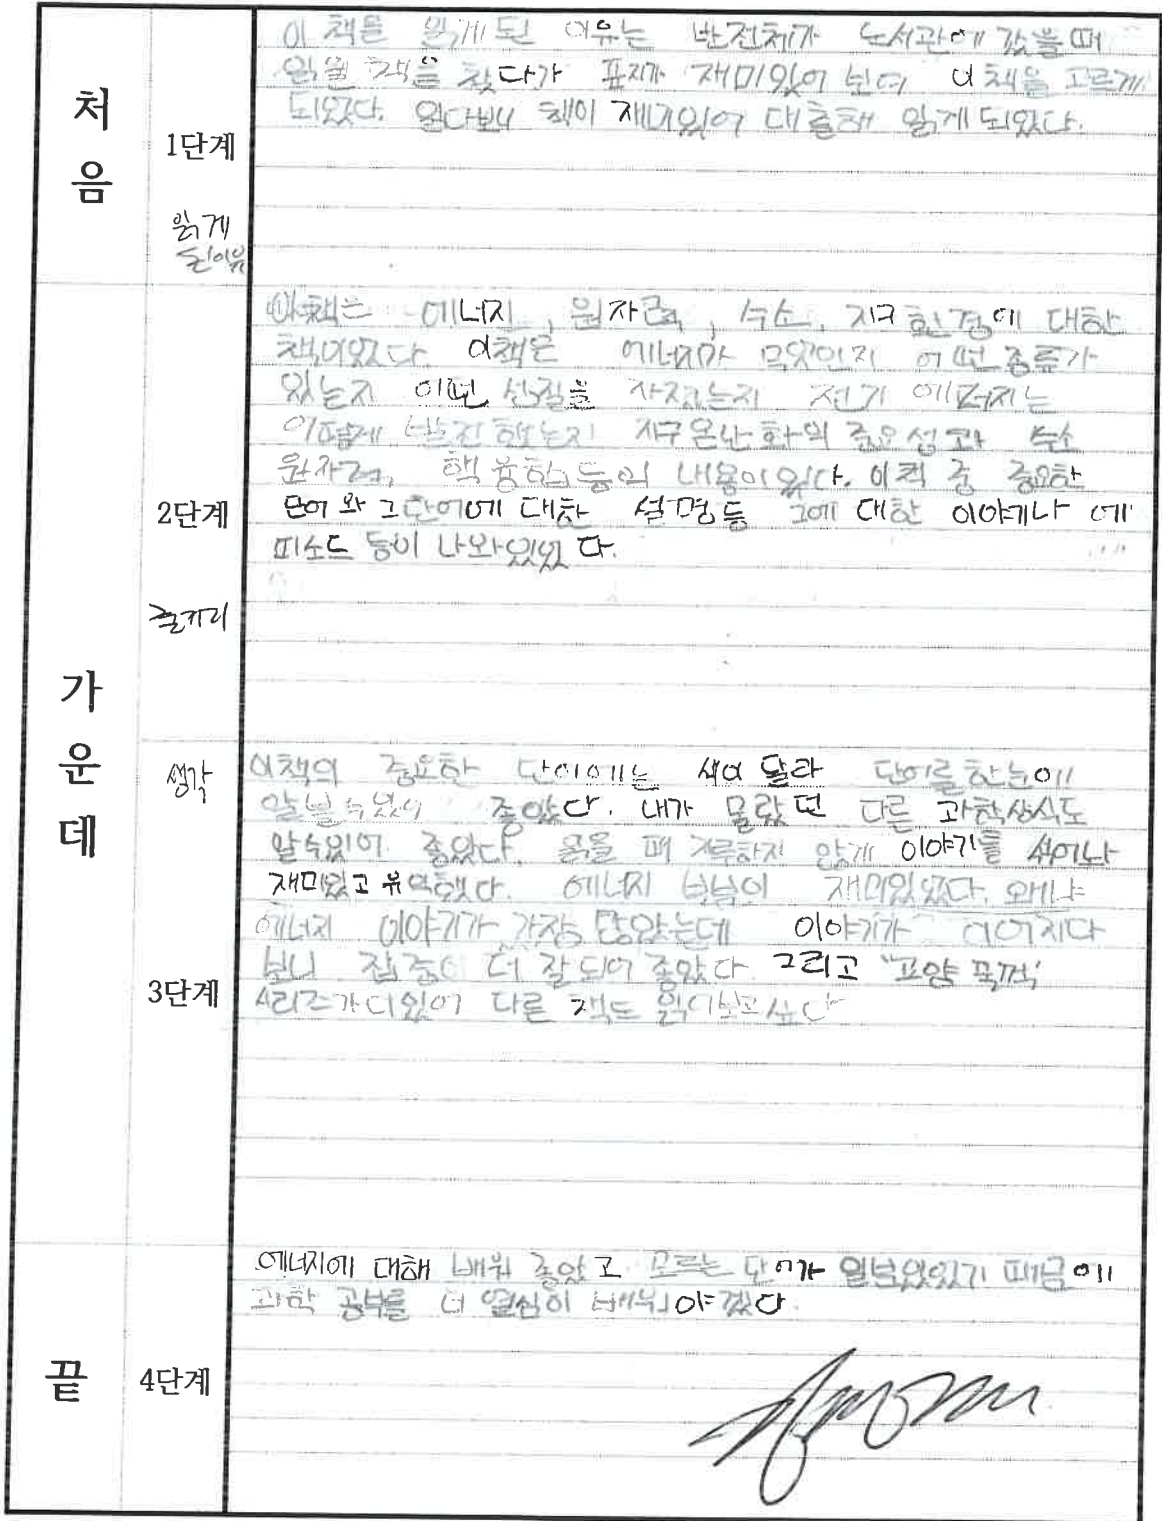 처음
1단계
읽게
된이유
이 책을 읽게 된 이유는 반전체가 도서관에 갔을때
읽을 책을 찾다가 표지가 재미있어 보여 이책을 고르게
되었다. 읽다보니 책이 재미있어 대출해 읽게되었다.
가운데
2단계
줄거리
이책은 에너지, 원자력, 수소, 지구환경에 대한
책이었다. 이책은 에너지가 무엇인지 어떤 종류가
있는지 어떤 성질을 가졌는지 전기 에너지는
어떻게 발전 하는지 지구온난화의 중요성과 수소
원자력, 핵융합등의 내용이있다. 이책 중 중요한
단어와 그단어에 대한 설명등 그에 대한 이야기나 에
피소드 등이 나와있었다.
생각
3단계
이책의 중요한 단어에는 색이 달라 단어를한눈에
알볼수있어 좋았다. 내가 몰랐던 다른 과학상식도
알수있어 좋았다. 읽을 때 지루하지 않게 이야기를 섞어나
재미있고 유익했다. 에너지 부분이 재미있었다. 왜냐
에너지 이야기가 가장 많았는데 이야기가 이어지다
보니 집중이 더 잘되어 좋았다 그리고 '교양 꿀꺽'
시리즈가더있어 다른 책도 읽어보고싶다
끝
4단계
에너지에 대해 배워 좋았고 모르는 단어가 일부있었기 때문에
과학 공부를 더 열심히 배워야겠다.